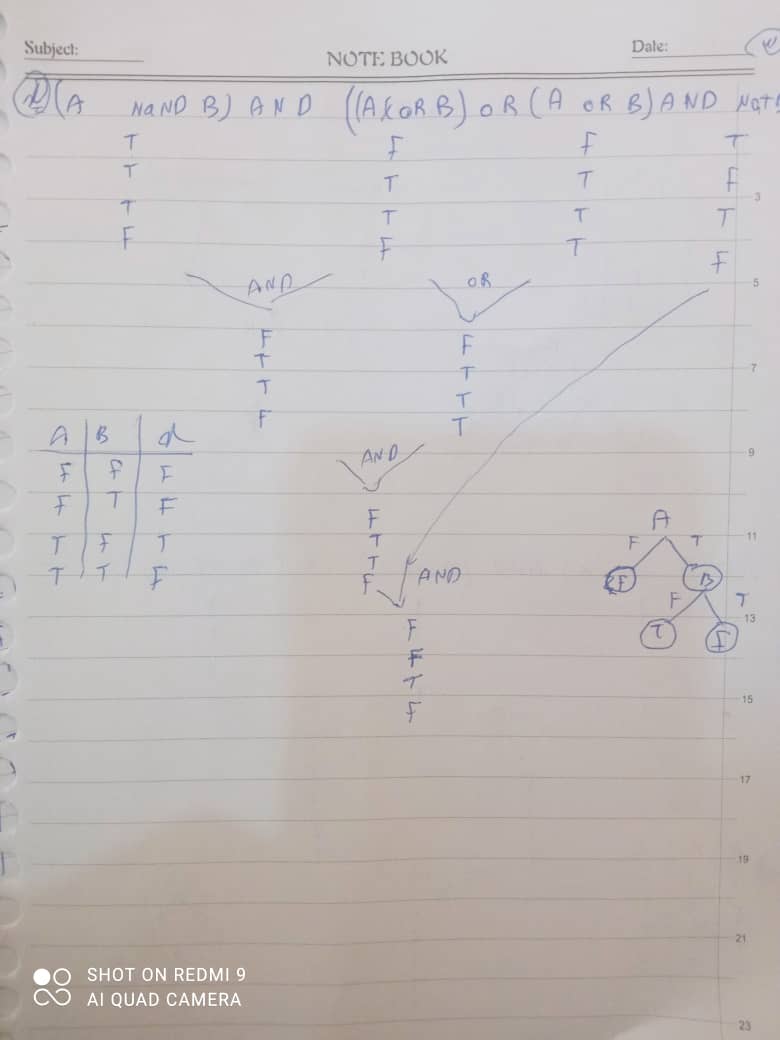 Subject:
NOTE BOOK
Date:
(A NaND B) AND ((AXORB) OR (A OR B) AND Not
T F F T
T T T F
T T T T
F F T F
AND OR
F F
T T
T T
F T
A B d
F F F
F T F
T F T
T T F
AND
F
T
T
F AND
F
F
T
F
A
F T
F B
F T
T F
3
5
7
9
11
13
15
17
19
21
23
SHOT ON REDMI 9
AI QUAD CAMERA